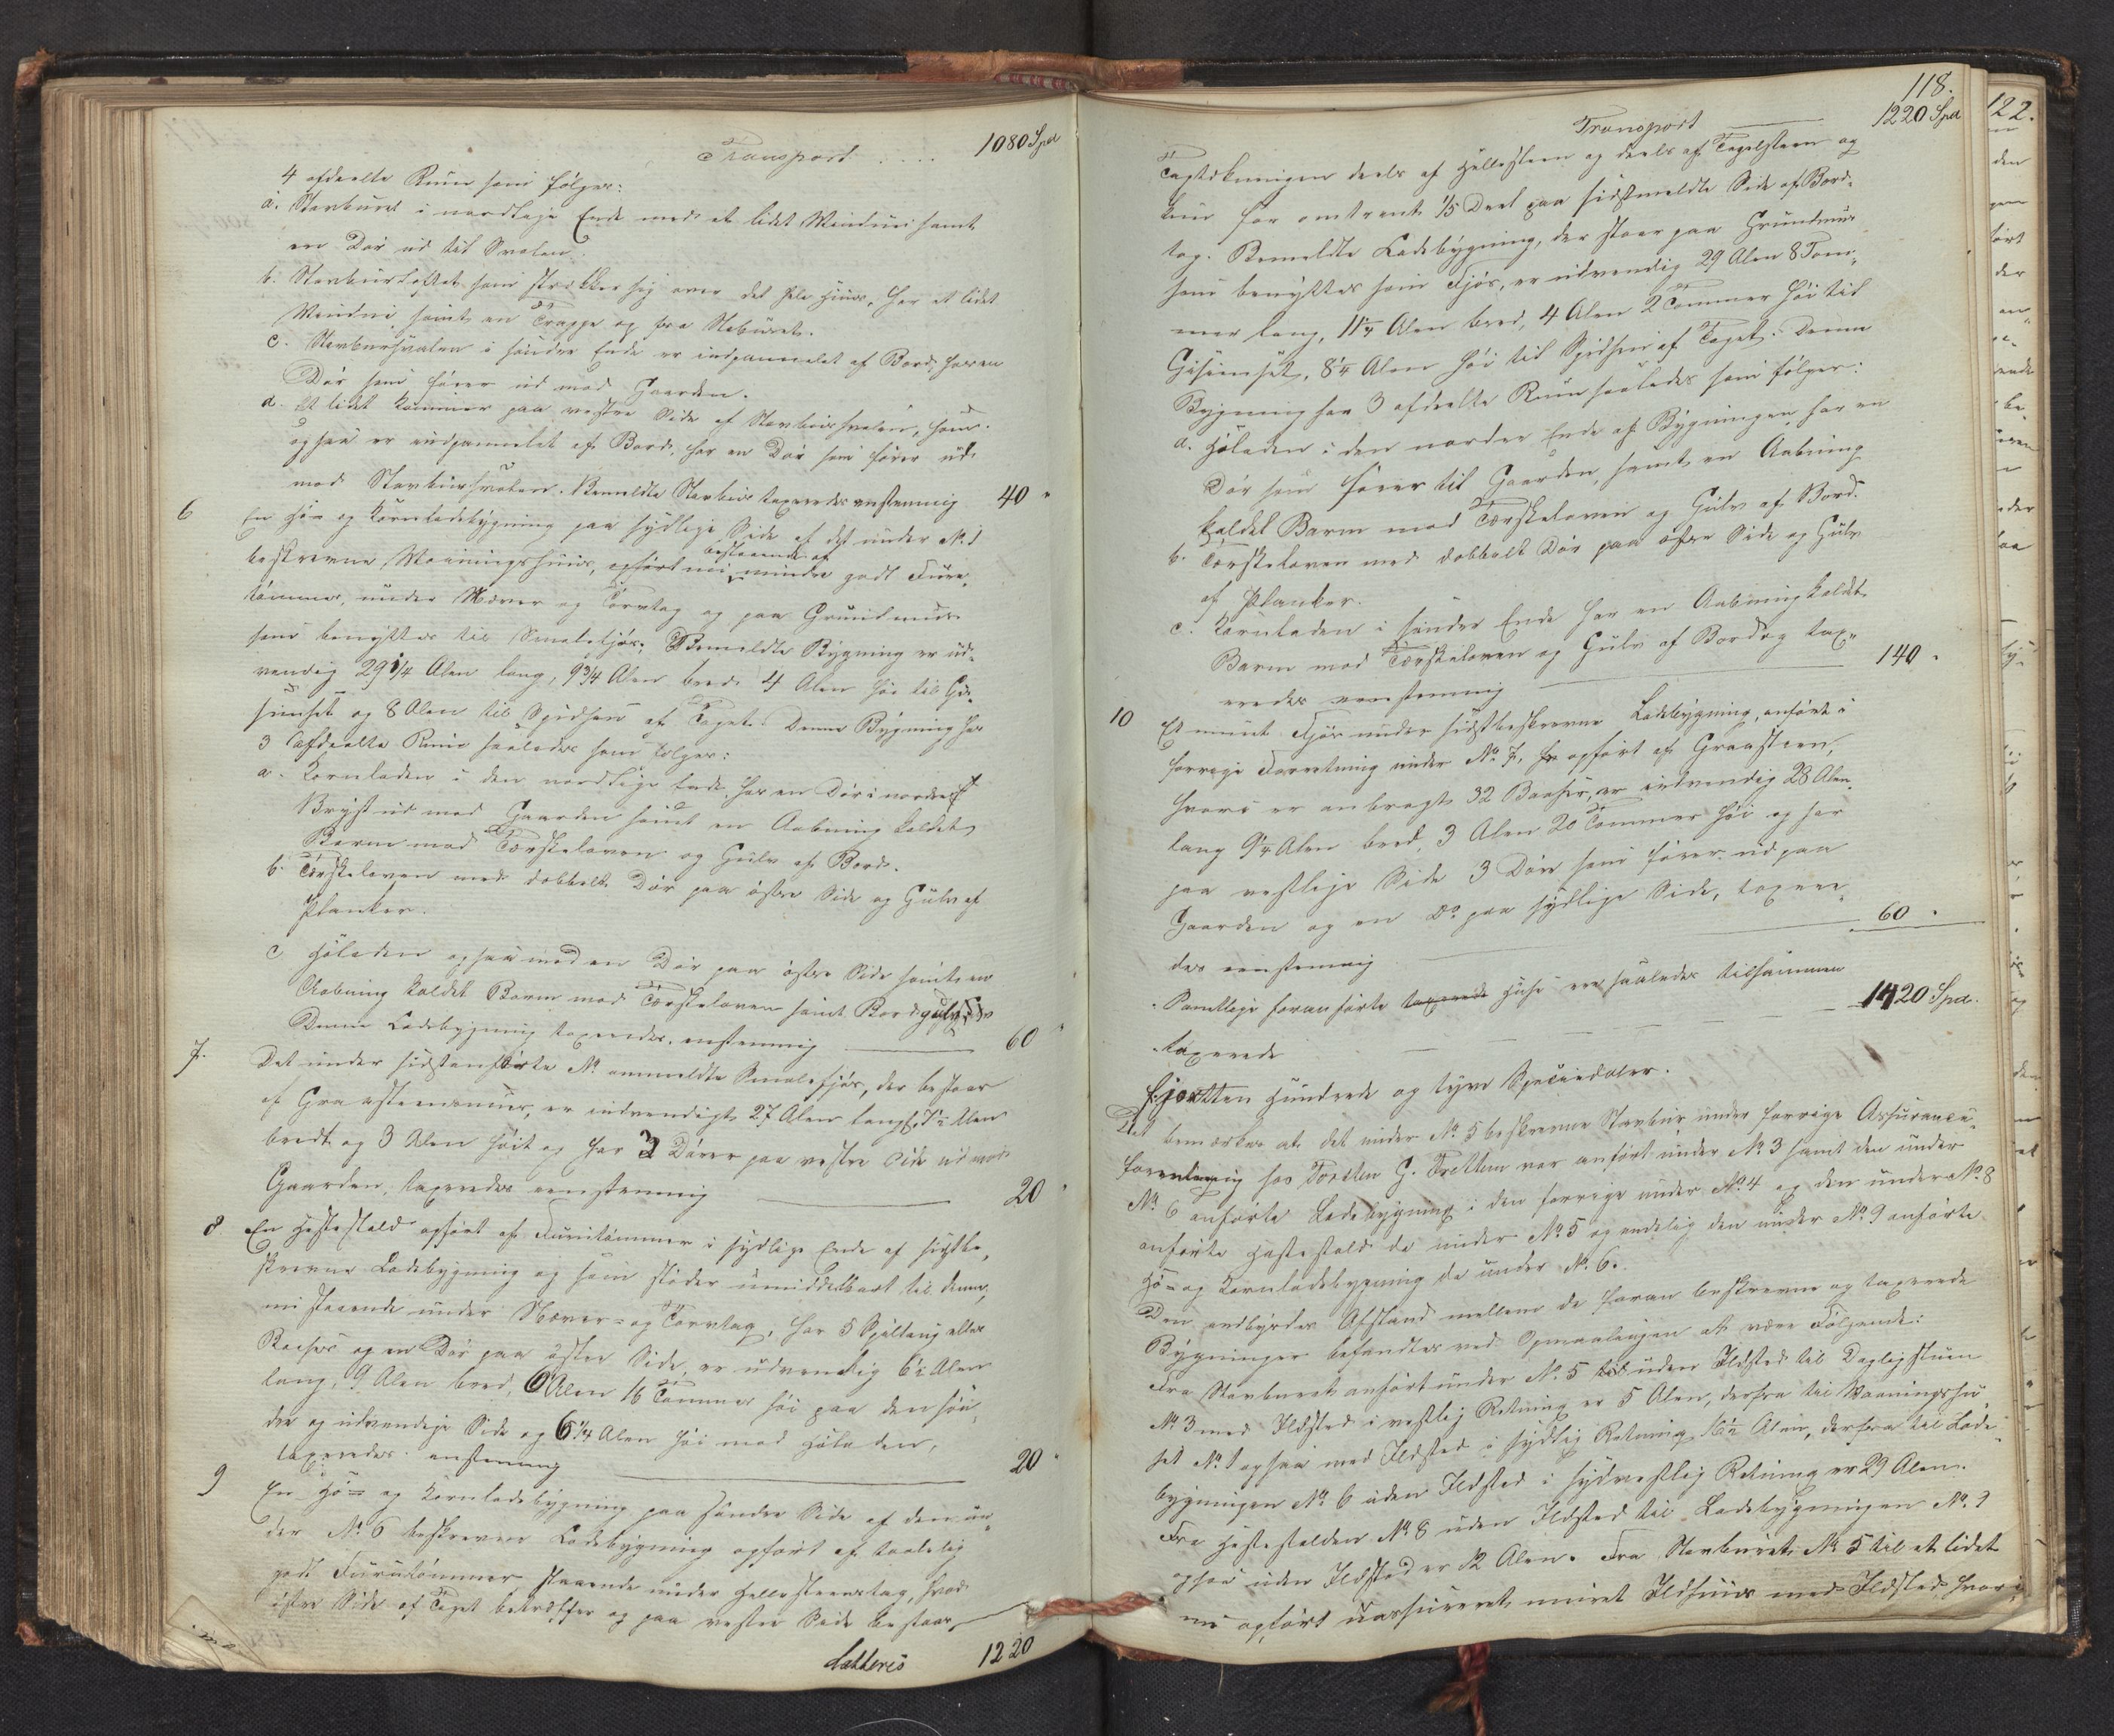 Transport .... 1080 Spd
4 afdeelte Rum som følger:
a. Stavburet i nordlige Ende med et lidet Vindue samt
en Dør ud til Svalen.
b. Stavbursloftet som strækker sig over det hele Huus, har et lidet
Vindue samt en Trappe op fra Staburet.
c. Stavbursvalen i søndre Ende er indpannelet af Bord, har en
Dør som fører ud mod Gaarden.
d. Et lidet Kammer paa vestre Side af Stavbursvalen, som
ogsaa er indpannelet af Bord, har en Dør som fører ud
mod Stavbursvalen. Bemeldte Stavbur taxeredes eenstemmig 40 "
6 En Hø- og Kornladebygning paa sydlige Side af det under No 1
beskrevne Vaaningshuus, opført af bestaaende af mindre godt Furu-
tømmer, under Næver og Torvtag og paa Grundmuur
som benyttes til Smalefjøs. Bemeldte Bygning er ud-
vendig 29 1/4 Alen lang, 9 3/4 Alen bred, 4 Alen høi til Ge-
simset og 8 Alen til Spidsen af Taget. Denne Bygning har
3 afdeelte Rum saaledes som følger:
a. Kornladen i den nordlige Ende, har en Dør i nordre
Bryst ud mod Gaarden samt en Aabning kaldet
Barm mod Tærskeloven og Gulv af Bord.
b. Tærskeloven med dobbelt Dør paa østre Side og Gulv af
Planker.
c Høladen ogsaa med en Dør paa østre Side samt en
Aabning kaldet Barm mod Tærskeloven samt Bordgulv
Denne Ladebygning taxeredes eenstemmig 60 "
7. Det under sidstanførte No ommeldte Smalefjøs, der bestaar
af Graasteensmuur, er indvendigt 27 Alen langt, 7 1/2 Alen
bredt og 3 Alen høit og har 3 Dører paa vestre Side ud mod
Gaarden, taxeredes eenstemmig 20 "
8 En Hestestald opført af Furutømmer i sydlige Ende af sidstbe-
skrevne Ladebygning og som støder umiddelbart til denne,
staaende under Næver- og Torvtag, har 5 Spiltoug eller
Baaser og en Dør paa østre Side, er udvendig 6 1/2 Alen
lang, 9 Alen bred, 6 Alen 16 Tommer høi paa den søn-
dre og udvendige Side og 6 1/4 Alen høi mod Høladen,
taxeredes eenstemmig 20 "
9 En Hø- og Kornladebygning paa søndre Side af den un-
der No 6 beskrevne Ladebygning opført af taalelig
godt Furutømmer staaende under Hellesteenstag, hvad
østre Side af Taget betræffer og paa vestre Side bestaar
Latteris 1220
118.
Transport 1220 Spd
Tagtækningen deels af Hellesteen og deels af Tagelsteen og
kun for omtrent 1/5 Deel paa sidstmeldte Side af Bord-
tag. Bemeldte Ladebygning, der staar paa Grundmuur
som benyttes som Fjøs, er udvendig 29 Alen 8 Tom-
mer lang, 11 1/4 Alen bred, 4 Alen 2 Tommer høi til
Gesimset, 8 1/4 Alen høi til Spidsen af Taget. Denne
Bygning har 3 afdeelte Rum saaledes som følger:
a. Høladen i den nordre Ende af Bygningen har en
Dør som fører til Gaarden, samt en Aabning
kaldet Barm mod Tærskeloven og Gulv af Bord.
b. Tærskeloven med dobbelt Dør paa østre Side og Gulv
af Planker.
c. Kornladen i søndre Ende har en Aabning kaldet
Barm mod Tærskeloven og Gulv af Bord og tax-
eredes eenstemmig 140 "
10 Et muret Fjøs under sidstbeskrevne Ladebygning, anført i
forrige Forretning under No 7, er opført af Graasteen,
hvori er anbragt 32 Baaser, er indvendig 28 Alen
lang 9 1/4 Alen bred, 3 Alen 20 Tommer høi og har
paa vestlige Side 3 Døre som fører ud paa
Gaarden og en Do paa sydlige Side, taxere-
des eenstemmig 60 "
Samtlige foranførte taxerede Huse ere saaledes tilsammen
taxerede 1420 Spd.
fjortten Hundrede og tyve Speciedaler.
Det bemærkes at det under No 5 beskrevne Stavbur under forrige Assurance-
forretning hos Torsten G. Trettum var anført under No 3 samt den under
No 6 anførte Ladebygning i den forrige under No 4 og den under No 8
anførte Hestestald da under No 5 og endelig den under No 9 anførte
Hø- og Kornladebygning da under No 6.
Den indbyrdes Afstand mellem de foran beskrevne og taxerede
Bygninger befandtes ved Opmaalingen at være Følgende:
Fra Stavburet anført under No 5 uden Ildsted til Dagligstuen
No 3 med Ildsted i vestlig Retning er 5 Alen, derfra til Vaaningshu-
set No 1 ogsaa med Ildsted i sydlig Retning 16 1/2 Alen, derfra til Lade-
bygningen No 6 uden Ildsted i sydvestlig Retning er 29 Alen.
Fra Hestestalden No 8 uden Ildsted til Ladebygningen No 9
ogsaa uden Ildsted er 12 Alen. Fra Stavburet No 5 til et lidet
nu opført uassureret muret Ildhuus med Ildsted, hvori
122.